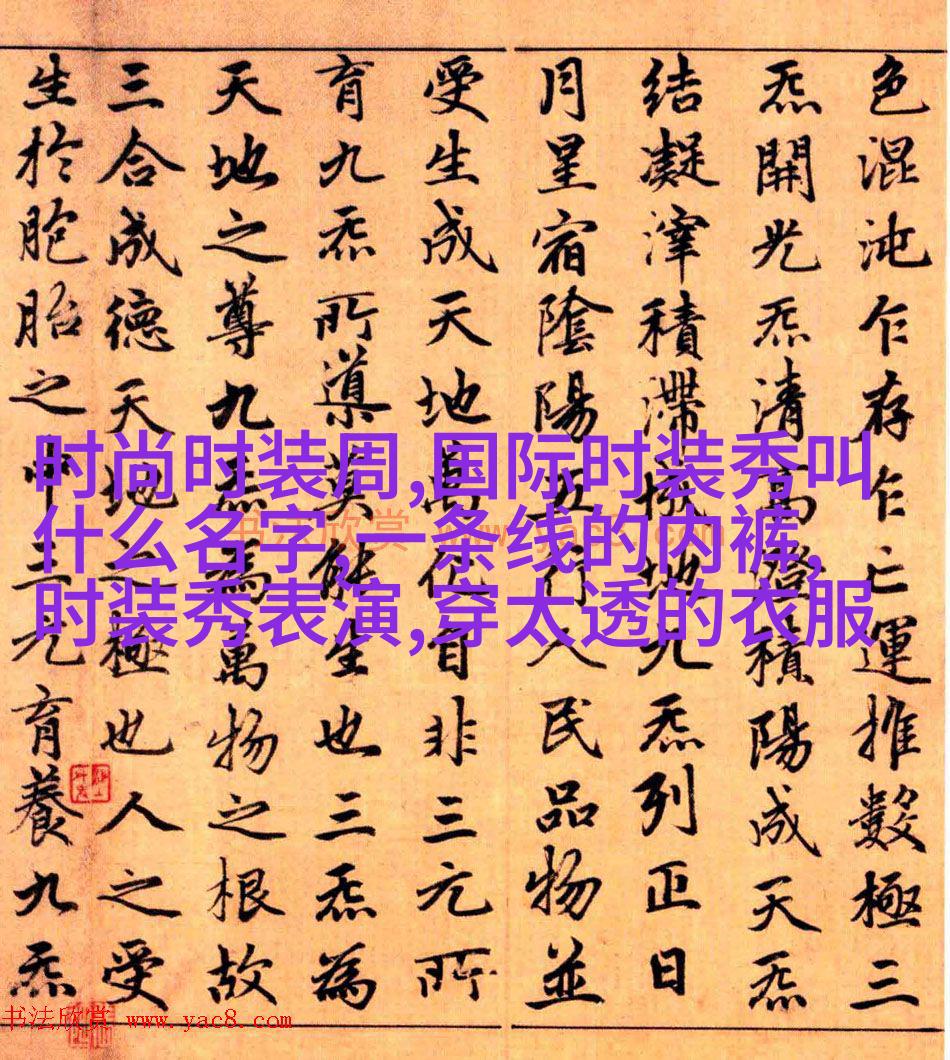 色混沌乍存乍亡運推數極三
炁開光炁清高澄積陽成天炁
結凝滓積滯成地九炁列正日
月星宿陰陽五行人民品物並
受生成天地萬化自非三元所
育九炁所導莫能生也三炁為
天地之尊九炁為萬物之根故
三合成德天地之極也人之受
生於胞胎之中三元育養九炁
时尚时装周,国际时装秀叫
什么名字,一条线的内裤,
时装秀表演,穿太透的衣服
书法欣赏 www.yac8.com